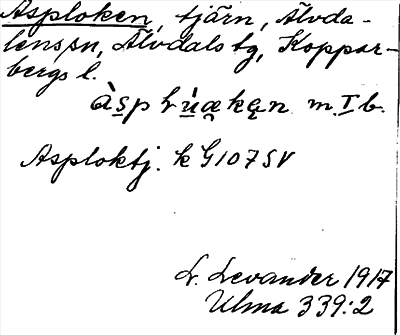 Asploken, tjärn, Älvda-
lens sn, Älvdals tg, Koppar-
bergs l.
m. I b.
Asploktj. k G107 SV
L. Levander 1917
Ulma 339:2